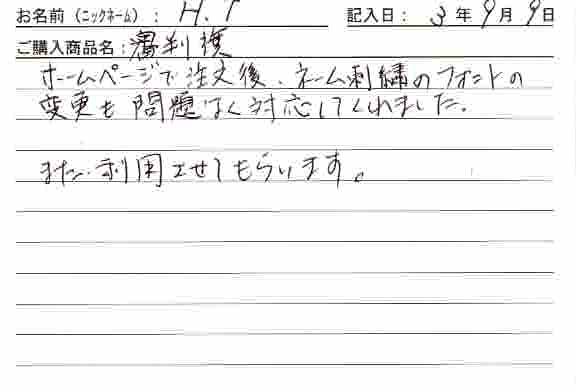 お名前（ニックネーム）： H.T 記入日： 3年9月9日
ご購入商品名：審判複
ホームページで注文後、ネーム刺繍のフォントの
変更も問題なく対応してくれました。
また利用させてもらいます。